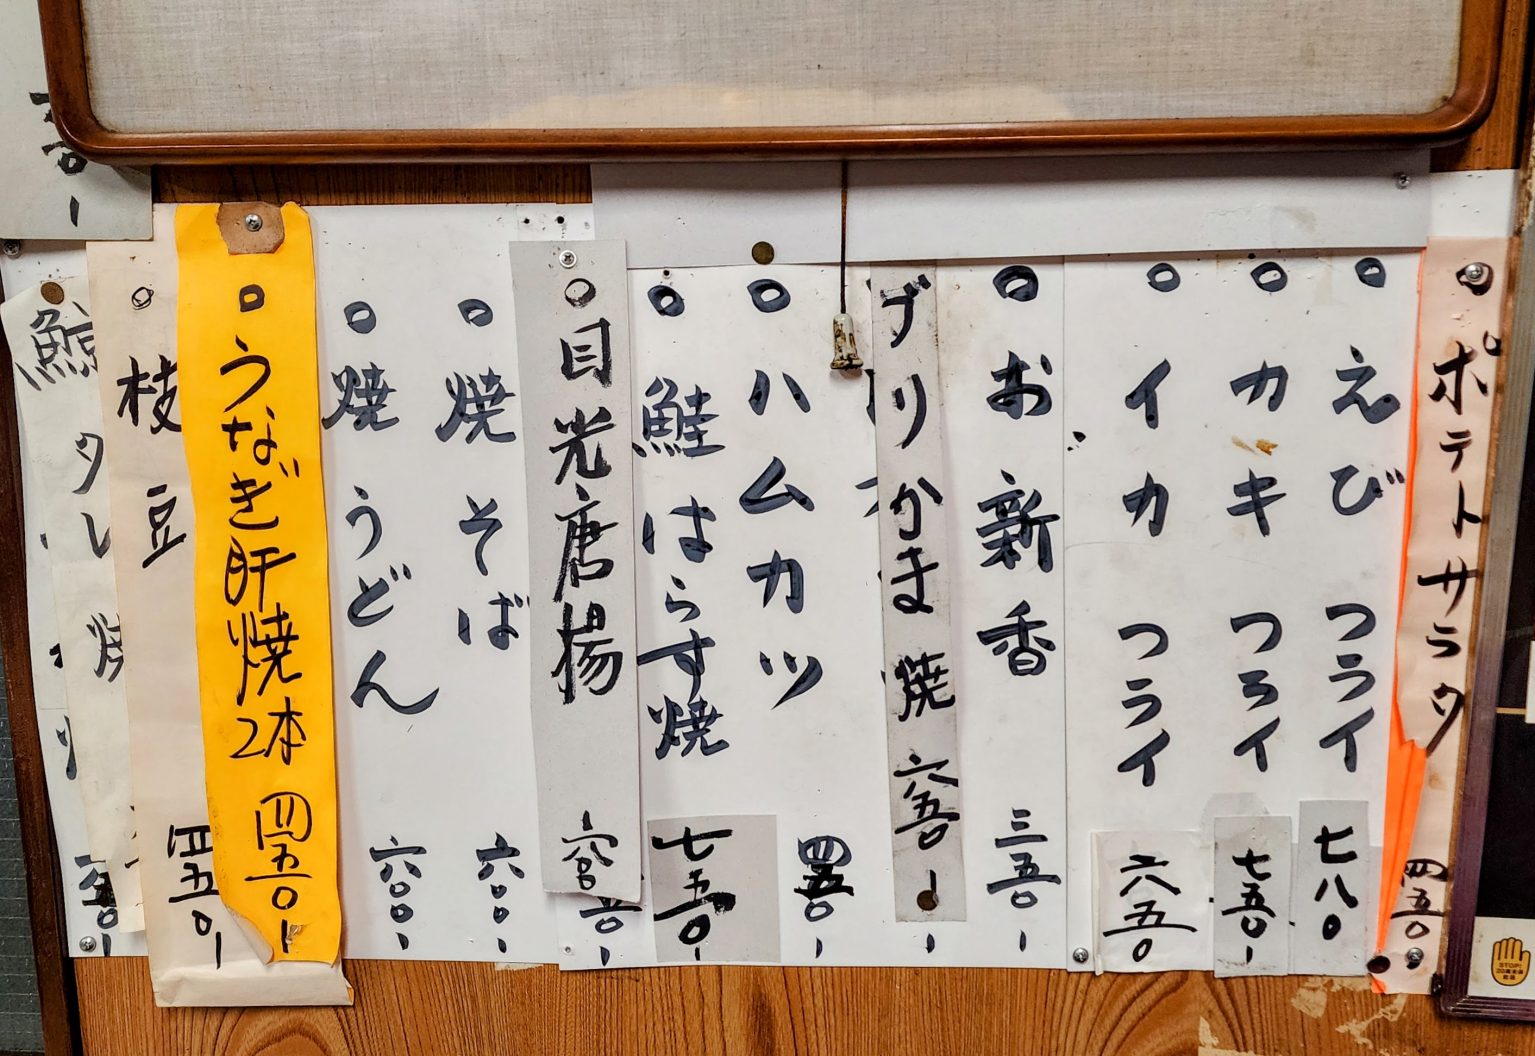 ポテトサラダ 四五〇
えびフライ 七八〇
カキフライ 七五〇
イカフライ 六五〇
お新香 三五〇
ブリかま焼 六五〇
ハムカツ 四五〇
鮭はらす焼 七五〇
目光唐揚
焼そば 六〇〇
焼うどん 六〇〇
うなぎ肝焼2本 四五〇
枝豆 四五〇
鯨
タレ焼
STOP!